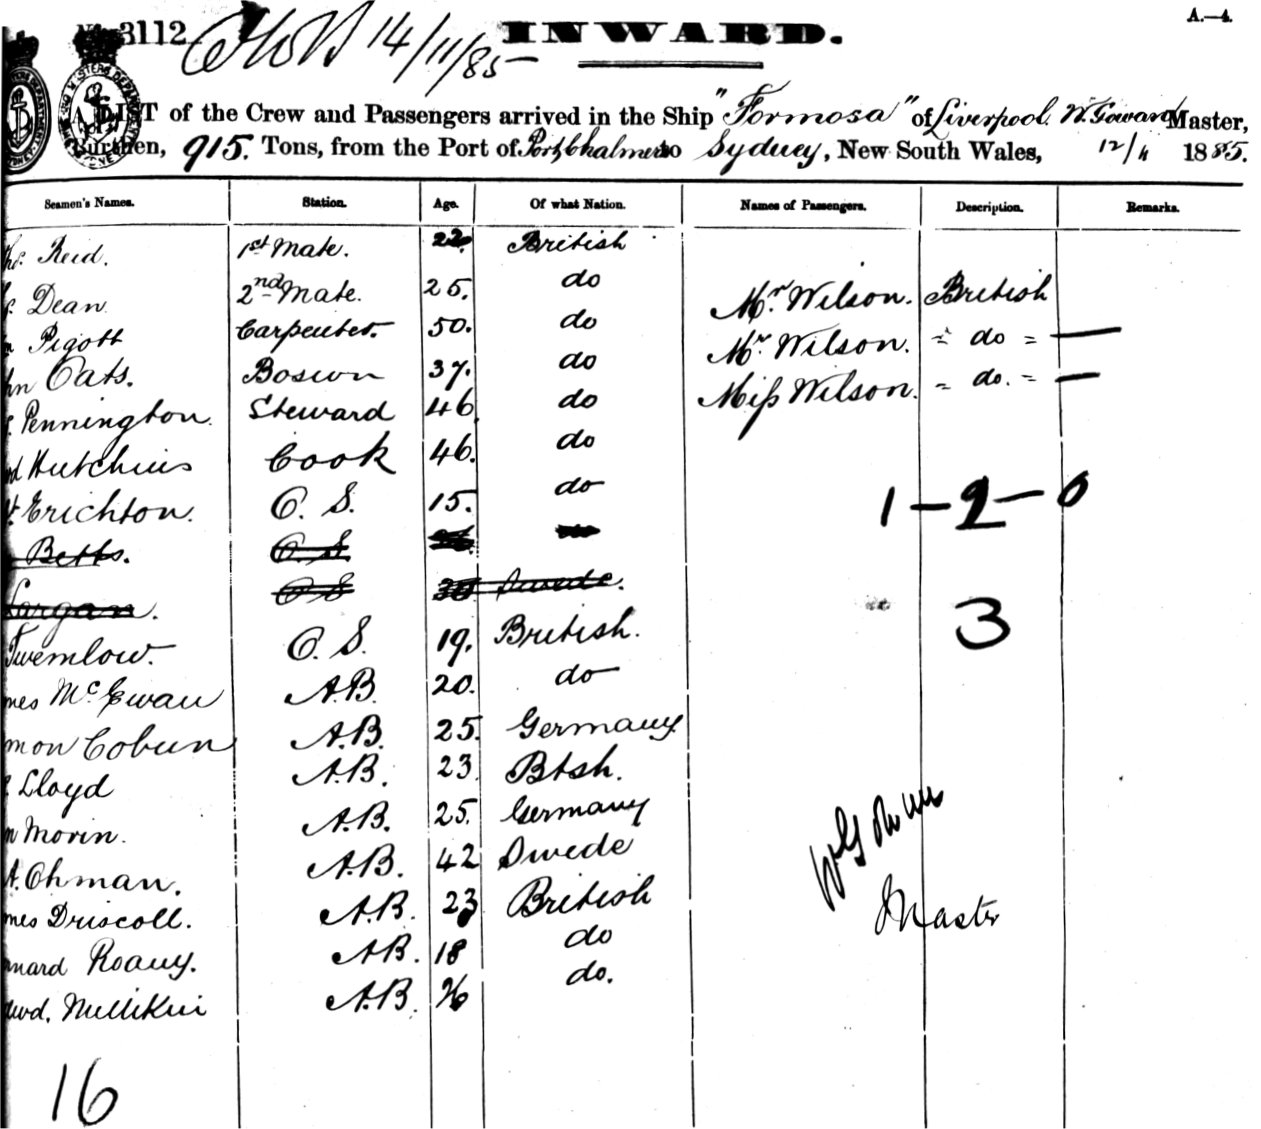 A.—4.
3112 14/11/85
INWARD.
LIST of the Crew and Passengers arrived in the Ship "Formosa" of Liverpool. W. Gowan Master,
Burthen, 915. Tons, from the Port of Port Chalmers to Sydney, New South Wales, 12/11 1885.
Seamen's Names. Station. Age. Of what Nation. Names of Passengers. Description. Remarks.
Reid. 1st Mate. 22. British
Dean 2nd Mate. 25. do Mr. Wilson. British
Pigott Carpenter. 50. do Mr. Wilson. " do "
Oats. Boswn 37. do Miss Wilson. " do. "
Pennington. Steward 46 do
Hutchins Cook 46. do
Erichton. O. S. 15. do 1—2—0
Betts. O. S.
Largan. O S 30 Swede. 3
Twemlow. O. S. 19. British.
mes McEwan A.B. 20. do
mon Cobun A.B. 25. Germany
Lloyd A.B. 23. Btsh.
Morin. A.B. 25. Germany
A. Ohman. A.B. 42 Swede
mes Driscoll. A.B. 23 British
Master
nard Roauy. A.B. 18 do
A.B. 26 do.
16